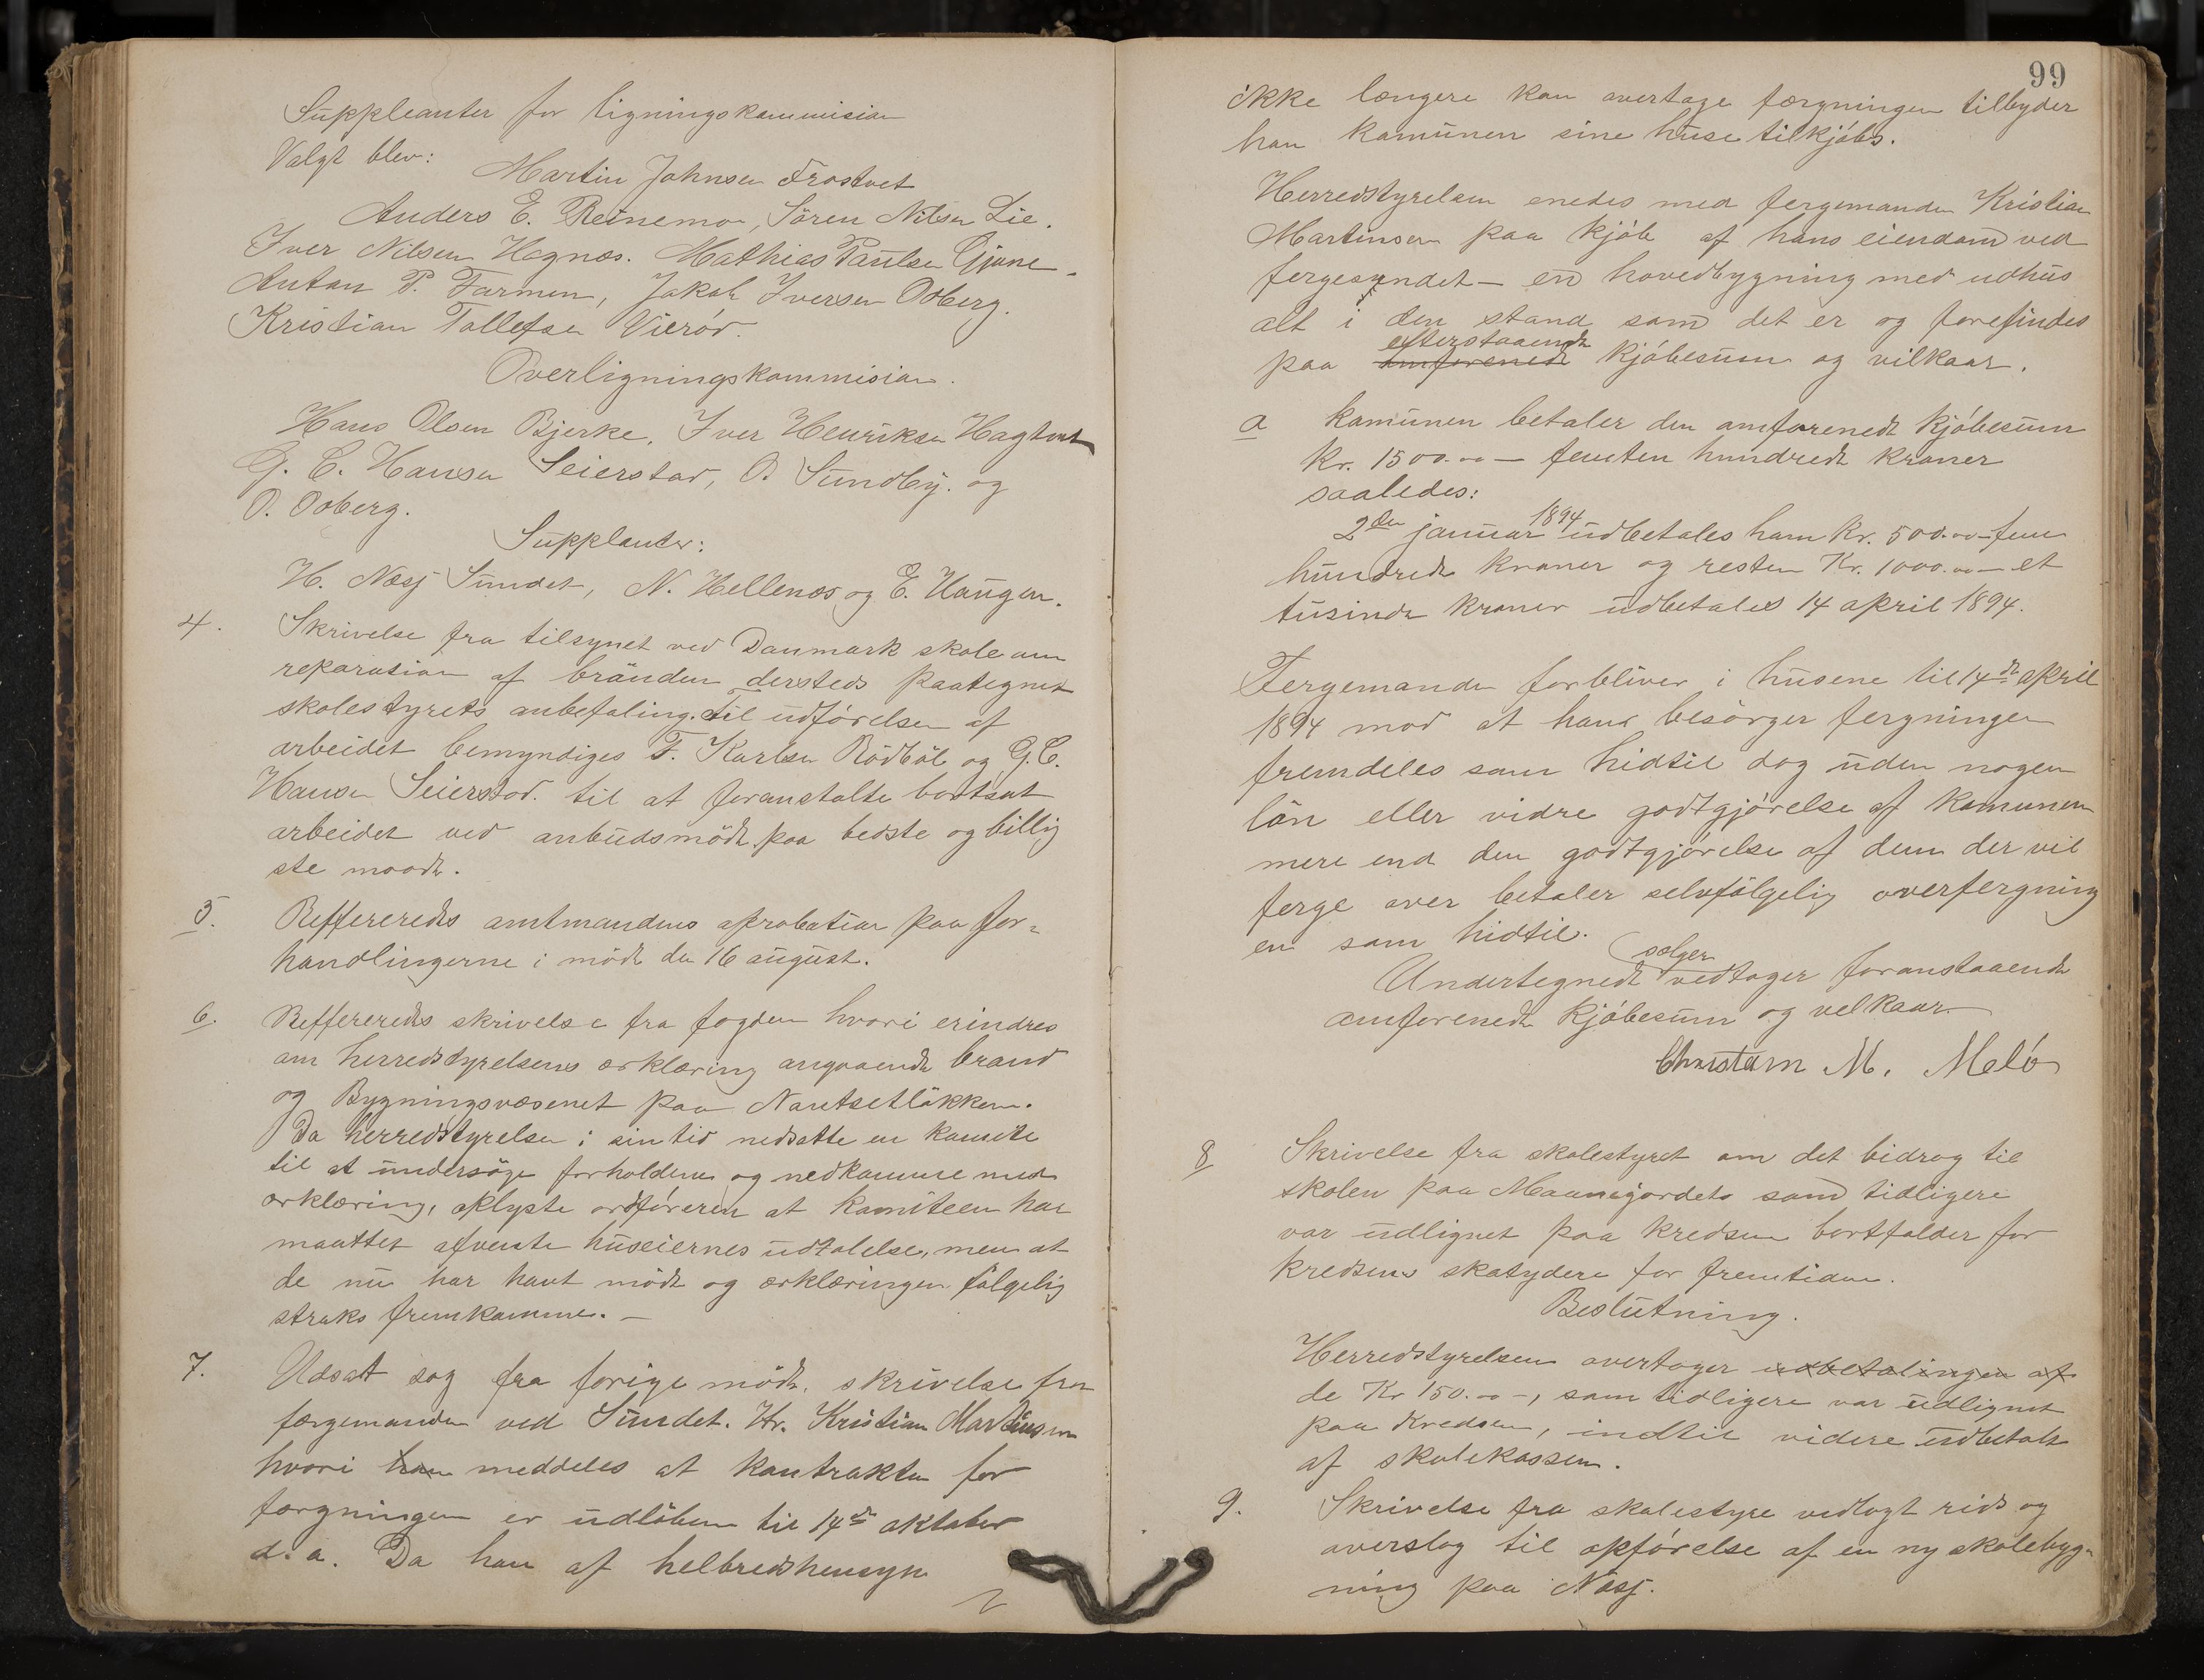 Suppleanter for ligningskommision
Valgt blev:
Martin Johnsen Frostvet
Anders E. Reinemo, Sören Nilsen Lie.
Iver Nilsen Hagnæs. Mathias Paulsen Gjone.
Anton P. Farmen, Jakob Iversen Odberg.
Kristian Tollefsen Vierød.
Overligningskommision.
Hans Olsen Bjerke, Iver Henriksen Hagtvet
G. C. Hansen Seierstad, O. Sundby. og
O. Odberg.
Supplanter:
H. Næsj Sundet, N. Hellenæs og E. Haugen.
4. Skrivelse fra tilsynet ved Danmark skole om
reparation af brönden dersteds paategnet
skolestyrets anbefaling. til udförelsen af
arbeidet bemyndiges F. Karlsen Rödböl og G. C.
Hansen Seierstad. til at foranstalte bortsat
arbeidet ved anbudsmöde paa bedste og billig
ste maade.
5. Reffereredes amtmandens aprobation paa for=
handlingerne i möde den 16 august.
6. Reffereredes skrivelse fra fogden hvori erindres
om herredstyrelsens erklæring angaaende brand
og Bygningsvæsenet paa Nantsetlökken.
Da herredstyrelsen i sin tid nedsatte en komite
til at undersöge forholdene og nedkomme med
erklæring, oplyste ordföreren at komiteen har
maattet afvente huseiernes udtalelse, men at
de nu har havt möde og erklæringen fölgelig
straks fremkomme. —
7. Udsat sag fra forige möde. skrivelse fra
færgemanden ved Sundet. Hr. Kristian Martinsen
hvori han meddeles at kontrakten for
færgningen er udlöben til 14de oktober
d. a. Da han af helbredshensyn
99
ikke længere kan overtage færgningen tilbyder
han komunen sine huse tilkjöbs.
Herredstyrelsen enedes med fergemanden Kristian
Martinsen paa kjöb af hans eiendom ved
fergesundet — en hovedbygning med udhus
alt i den stand som det er og forefindes
efterstaaende
paa omforenede kjöbesum og vilkaar.
a komunen betaler den omforenede kjöbesum
Kr. 1500.00 — femten hundrede kroner
saaledes:
2den januar 1894 udbetales ham Kr. 500.00 — fem
hundrede kroner og resten Kr. 1000.00 — et
tusinde kroner udbetales 14 april 1894.
Fergemanden forbliver i husene til 14de april
1894 mod at hans besörger fergningen
fremdeles som hidtil dog uden nogen
lön eller vidre godtgjörelse af komunen
mere end den godtgjörelse af dem der vil
ferge over betaler selvfölgelig overfergning
en som hidtil.
sælger
Undertegnede vedtager foranstaaende
omforenede kjöbesum og velkaar.
Christian M. Melö
8 Skrivelse fra skolestyret om det bidrag til
skolen paa Maanejordets som tidligere
var udlignet paa kredsen bortfalder for
kredsens skatydere for fremtiden.
Beslutning.
Herredstyrelsen overtager udbetalingen af
de Kr 150.00 -, som tidligere var udlignet
paa Kredsen, indtil videre udbetalt
af skolekassen.
9. Skrivelse fra skolestyre vedlagt rids og
overslag til opförelse af en ny skolebyg=
ning paa Næsj.